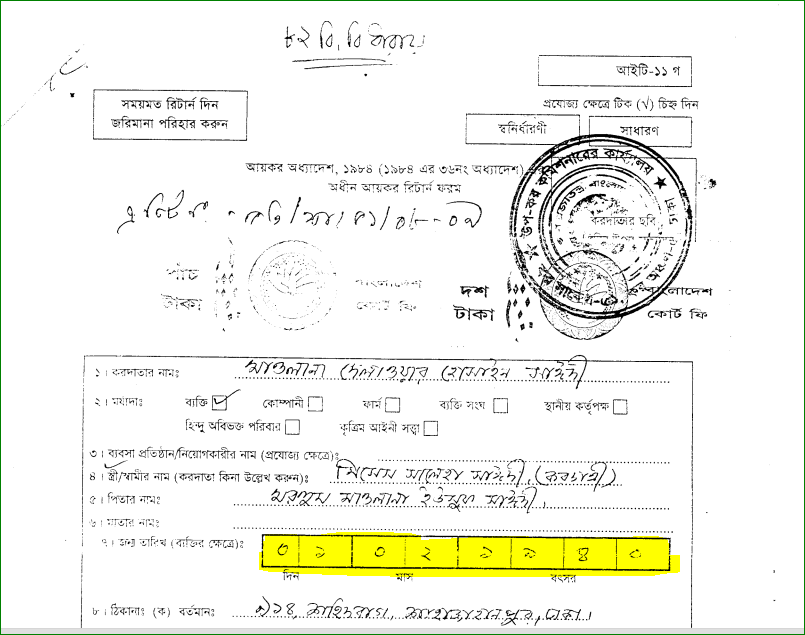 ৮২ বি, বি ধারায়
আইটি-১১ গ
সময়মত রিটার্ন দিন
জরিমানা পরিহার করুন
প্রযোজ্য ক্ষেত্রে টিক (√) চিহ্ন দিন
স্বনির্ধারণী
সাধারণ
আয়কর অধ্যাদেশ, ১৯৮৪ (১৯৮৪ এর ৩৬নং অধ্যাদেশ)
অধীন আয়কর রিটার্ন ফরম
উপ-কর কমিশনারের কার্যালয়
করদাতার ছবি
পাঁচ
টাকা
বাংলাদেশ
কোর্ট ফি
দশ
টাকা
বাংলাদেশ
কোর্ট ফি
১। করদাতার নামঃ মাওলানা দেলাওয়ার হোসাইন সাঈদী
২। মর্যাদাঃ ব্যক্তি কোম্পানী ফার্ম ব্যক্তি সংঘ স্থানীয় কর্তৃপক্ষ
হিন্দু অবিভক্ত পরিবার কৃত্রিম আইনী সত্ত্বা
৩। ব্যবসা প্রতিষ্ঠান/নিয়োগকারীর নাম (প্রযোজ্য ক্ষেত্রে)ঃ
৪। স্ত্রী/স্বামীর নাম (করদাতা কিনা উল্লেখ করুন)ঃ মিসেস সালেহা সাঈদী, (করদাত্রী)
৫। পিতার নামঃ মরহুম মাওলানা ইউসুফ সাঈদী,
৬। মাতার নামঃ
৭। জন্ম তারিখ (ব্যক্তির ক্ষেত্রে)ঃ ০ ১ ০ ২ ১ ৯ ৪ ০
দিন মাস বৎসর
৮। ঠিকানাঃ (ক) বর্তমানঃ ৯১৪, শহিদবাগ, শাহজাহানপুর, ঢাকা।